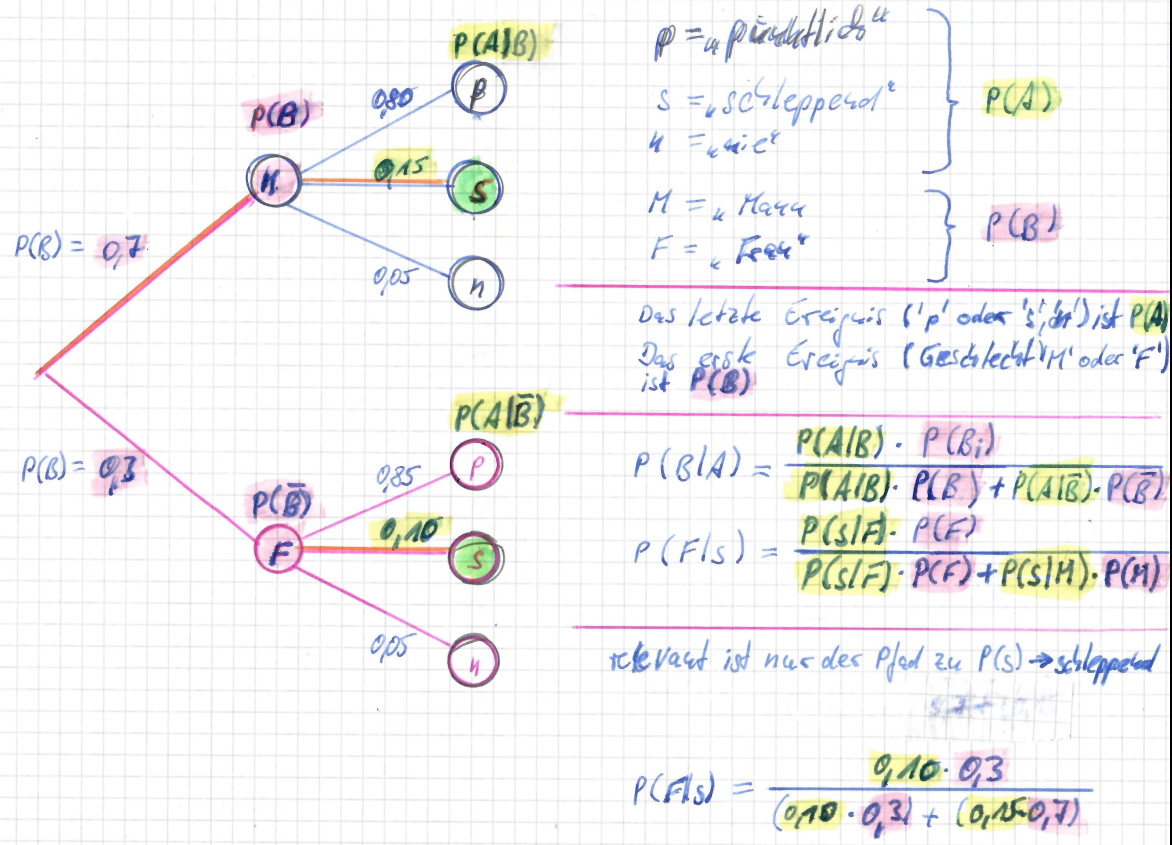 P(A|B)
P(B)
0,80
p
0,15
M
S
P(B) = 0,7
0,05
n
P(A|B̅)
P(B) = 0,3
0,85
P
P(B̅)
0,10
F
S
0,05
n
p = „pünktlich“
s = „schleppend“
n = „nie“
P(A)
M = „Mann
F = „Frau“
P(B)
Das letzte Ereignis ('p' oder 's','n') ist P(A)
Das erste Ereignis (Geschlecht 'M' oder 'F')
ist P(B)
P(B|A) = P(A|B) · P(Bi)
P(A|B) · P(B) + P(A|B̅) · P(B̅)
P(F|s) = P(s|F) · P(F)
P(s|F) · P(F) + P(s|M) · P(M)
relevant ist nur der Pfad zu P(s) → schleppend
P(F|s) = 0,10 · 0,3
(0,10 · 0,3) + (0,15·0,7)